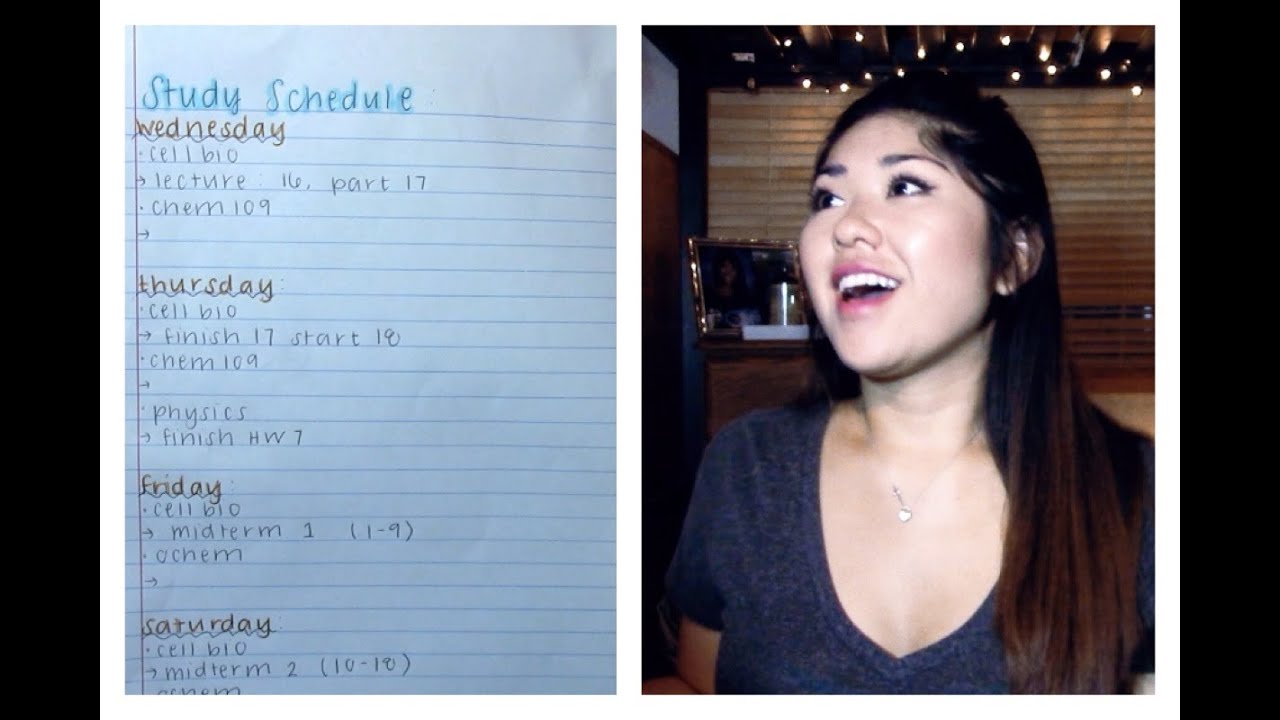 Study Schedule:
wednesday
· cell bio
→ lecture: 16, part 17
· chem 109
→
thursday:
· cell bio
→ finish 17 start 18
· chem 109
→
· physics
→ finish HW 7
friday:
· cell bio
→ midterm 1 (1-9)
· ochem
→
saturday:
· cell bio
→ midterm 2 (10-18)
· ochem